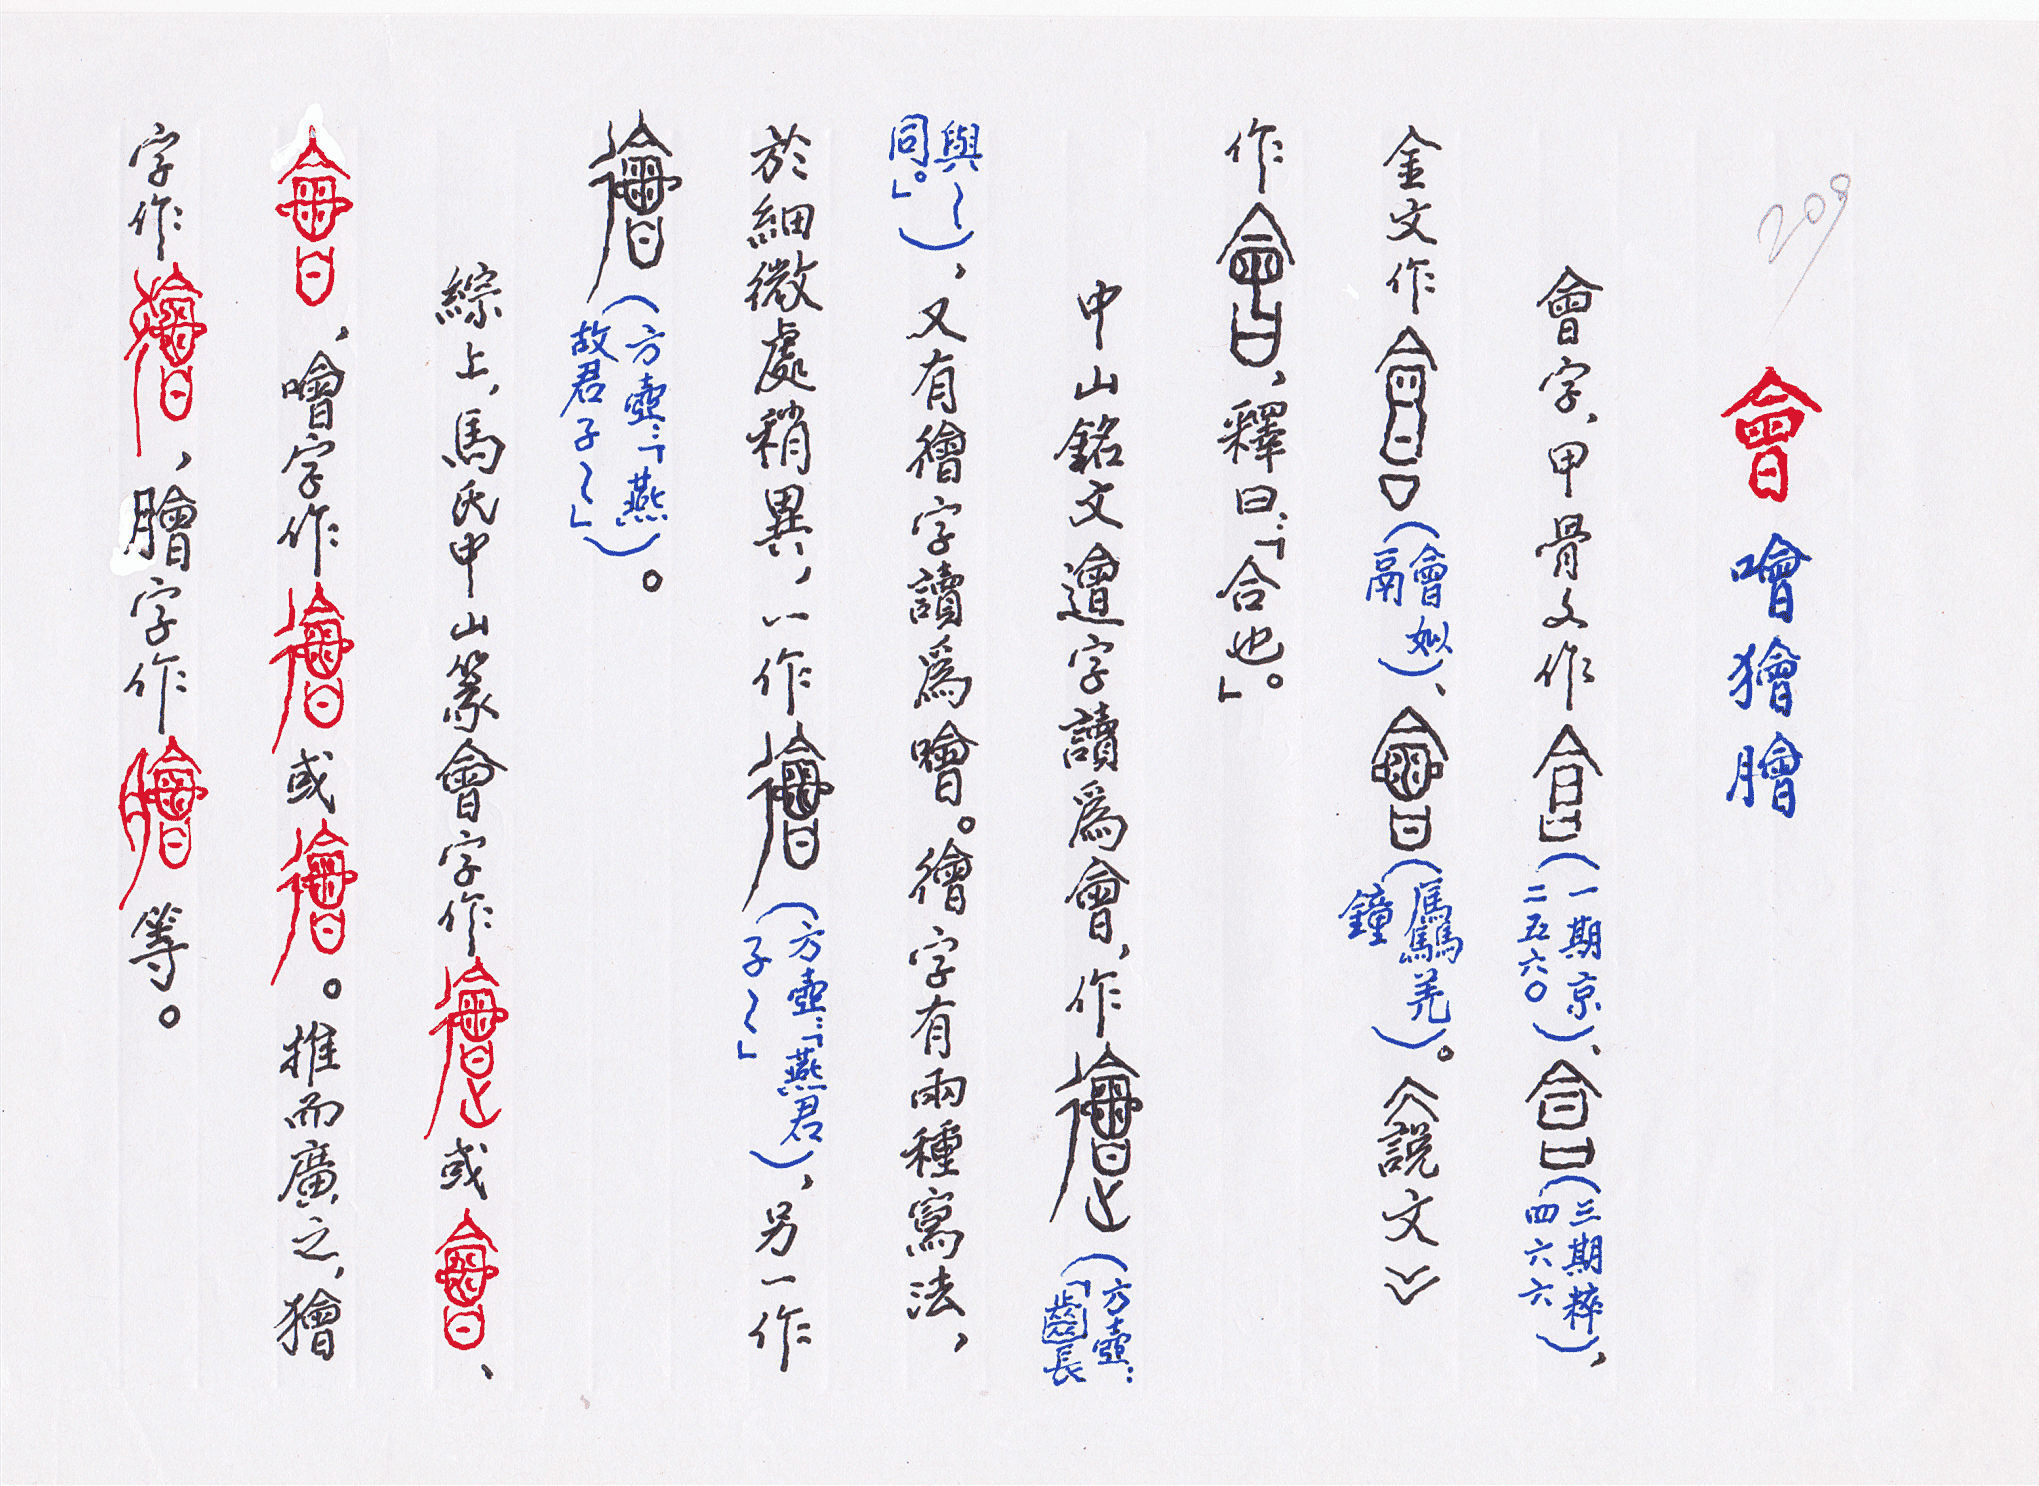 209
會噲獪膾
會字、甲骨文作(一期京二五六〇)、(三期粹四六六)，
金文作(會姒鬲)、(驫羌鐘)。《說文》
作，釋曰：「合也。」
中山銘文䢈字讀為會，作(方壺：「齒長
與〜同。」)，又有㣛字讀為噲。㣛字有兩種寫法，
於細微處稍異，一作(方壺：「燕君子〜」)，另一作
(方壺：「燕故君子〜」)。
綜上，馬氏中山篆會字作或、
，噲字作或。推而廣之，獪
字作，膾字作等。